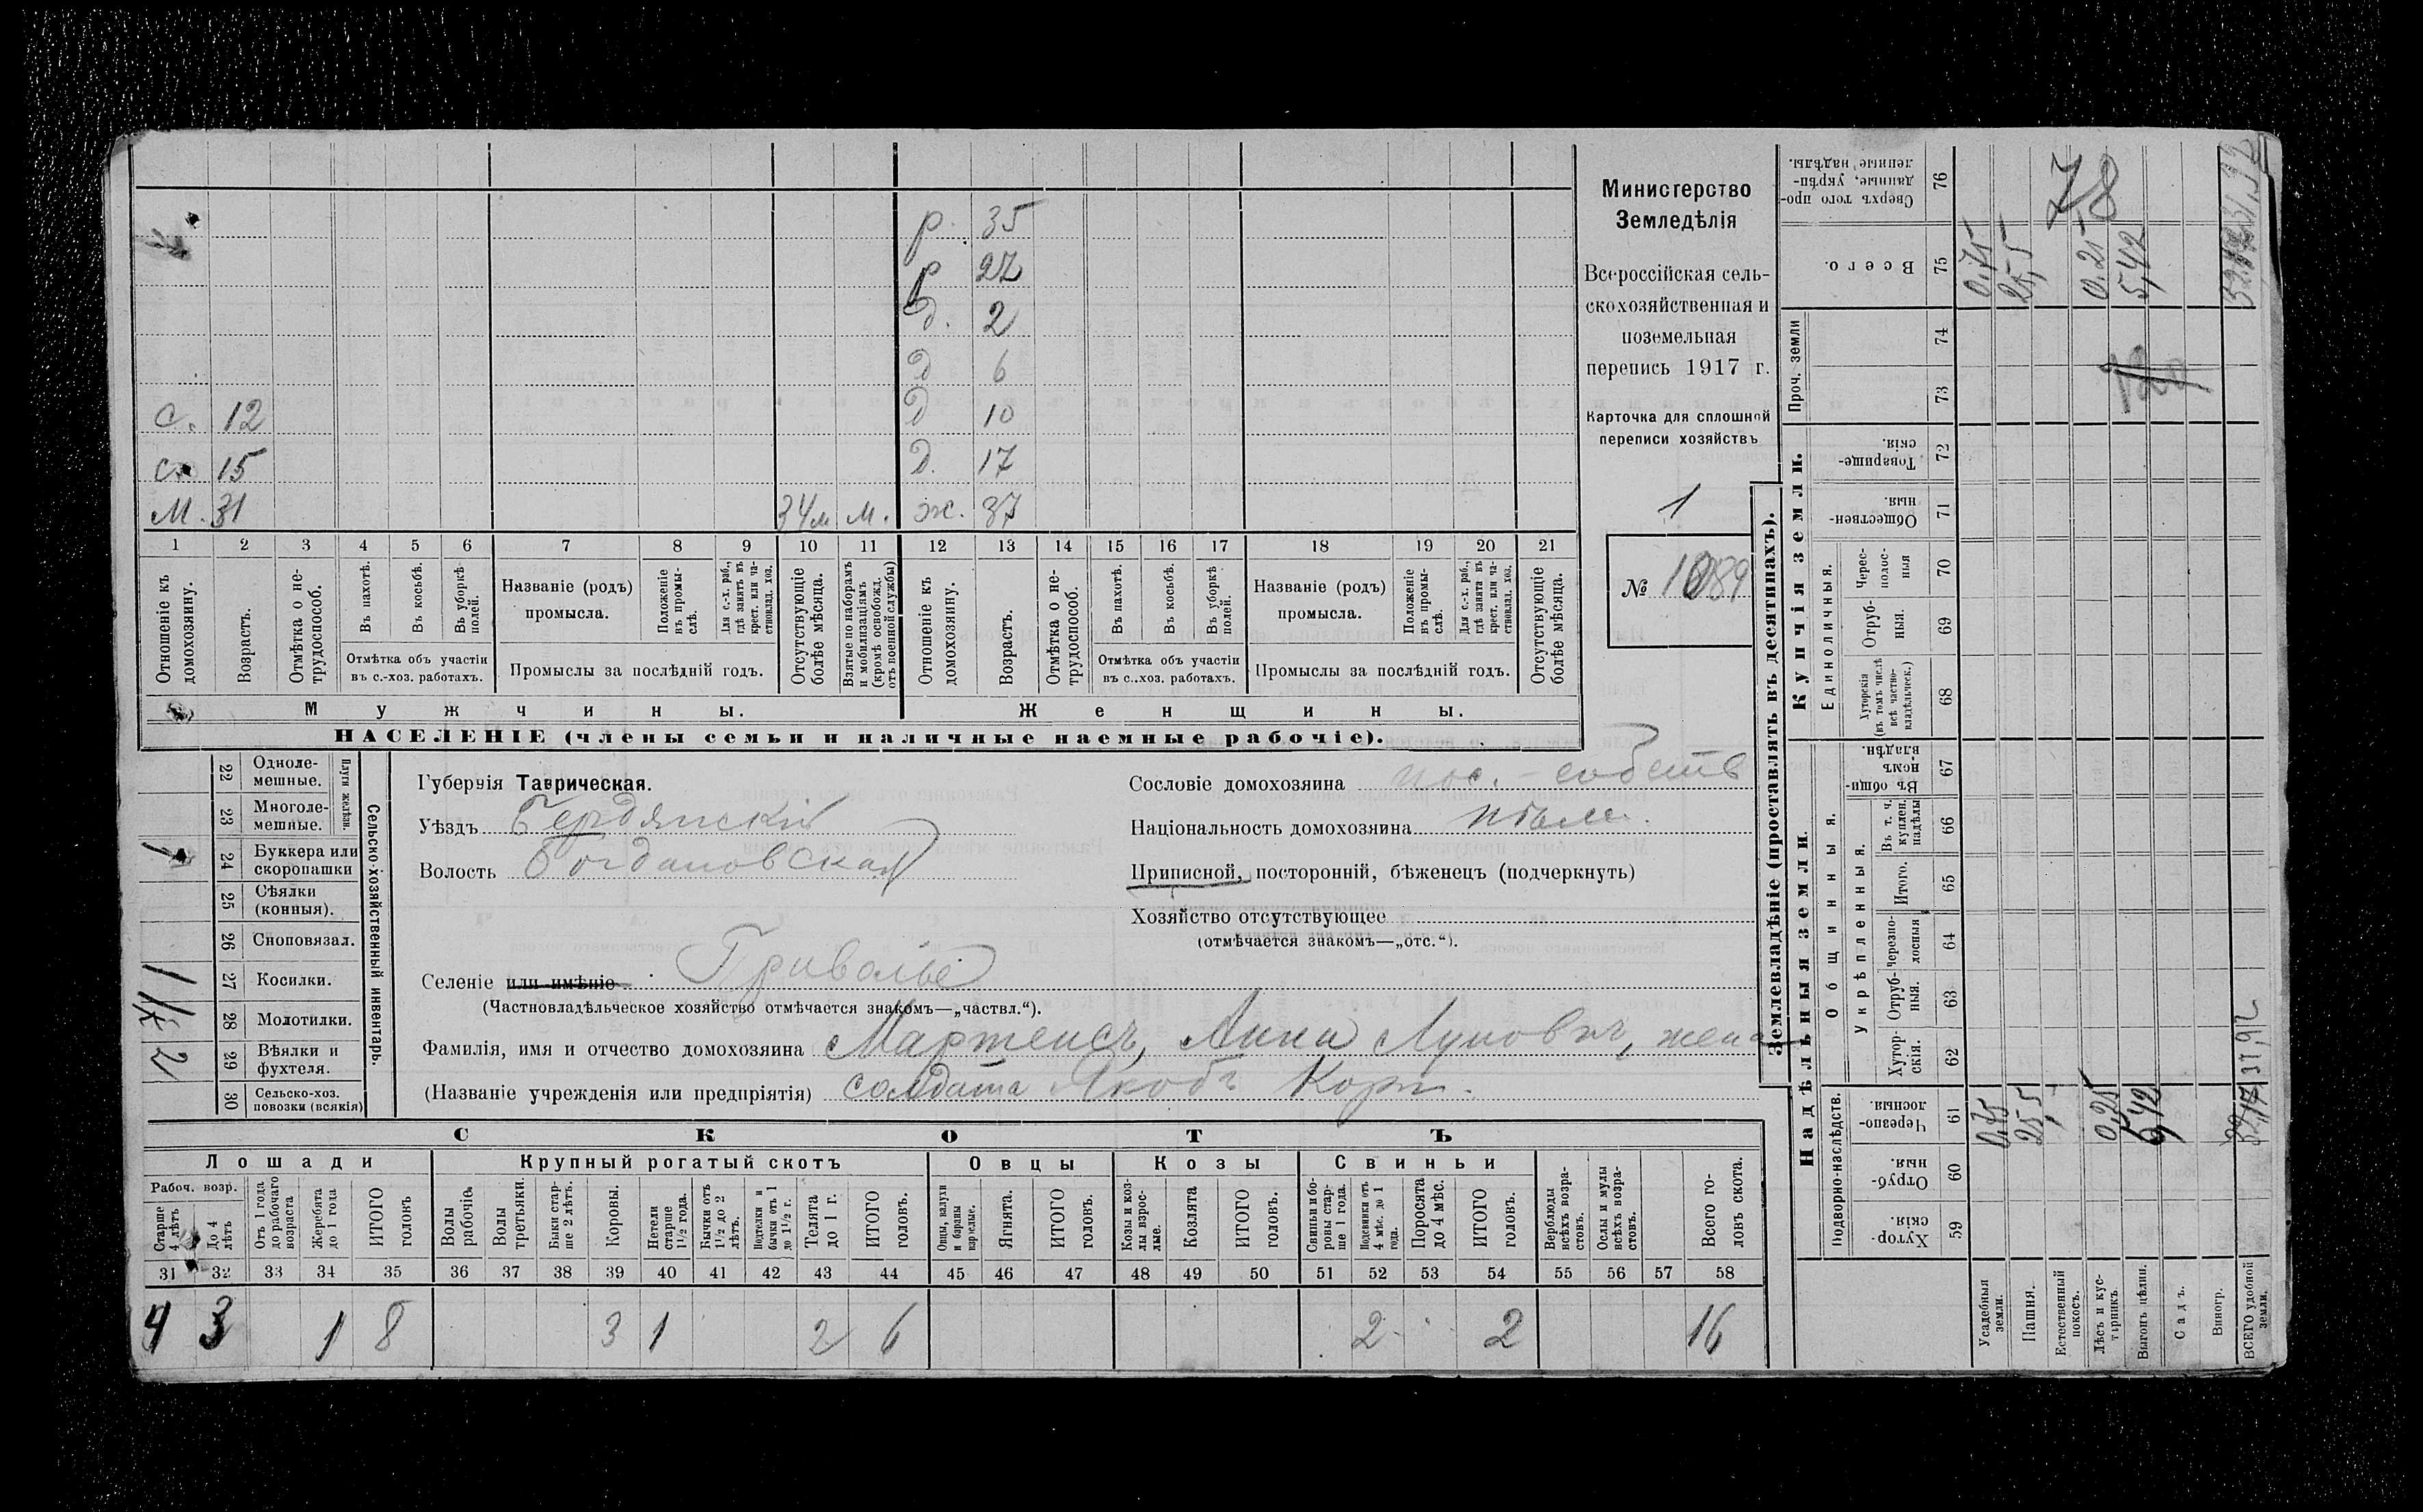 р. 35
р 27
д. 2
д 6
с. 12 д 10
с. 15 д. 17
М. 31 34м м. ж. 37
1 2 3 4 5 6 7 8 9 10 11 12 13 14 15 16 17 18 19 20 21
Отношеніе къ домохозяину.
Возрастъ.
Отмѣтка о не-трудоспособ.
Въ пахотѣ.
Въ косьбѣ.
Въ уборкѣ полей.
Отмѣтка объ участіи
въ с.-хоз. работахъ.
Названіе (родъ)
промысла.
Положеніе въ промы-слѣ.
Для с.-х. раб., гдѣ занятъ въ крест. или ча-стновлад. хоз.
Промыслы за послѣдній годъ.
Отсутствующіе болѣе мѣсяца.
Взятые по наборамъ и мобилизаціямъ (кромѣ освобожд. отъ военной службы)
Отношеніе къ домохозяину.
Возрастъ.
Отмѣтка о не-трудоспособ.
Въ пахотѣ.
Въ косьбѣ.
Въ уборкѣ полей.
Отмѣтка объ участіи
въ с..хоз. работахъ.
Названіе (родъ)
промысла.
Положеніе въ промы-слѣ.
Для с.-х. раб., гдѣ занята въ крест. или ча-стновлад. хоз.
Промыслы за послѣдній годъ.
Отсутствующіе болѣе мѣсяца.
Мужчины. Женщины.
НАСЕЛЕНІЕ (члены семьи и наличные наемные рабочіе).
Министерство
Земледѣлія
Всероссійская сель-
скохозяйственная и
поземельная
перепись 1917 г.
Карточка для сплошной
переписи хозяйствъ
1
№ 1089
22 Одноле-мешные.
23 Многоле-мешные.
Плуги желѣзн.
24 Буккера или скоропашки
25 Сѣялки (конныя).
26 Сноповязал.
27 Косилки.
28 Молотилки.
29 Вѣялки и фухтеля.
30 Сельско-хоз. повозки (всякія)
Сельско-хозяйственный инвентарь.
1
1
1
2
Губернія Таврическая.
Уѣздъ Бердянскій
Волость Богдановская
Сословіе домохозяина пос. - собств
Національность домохозяина нѣм.
Приписной, посторонній, бѣженецъ (подчеркнуть)
Хозяйство отсутствующее
(отмѣчается знакомъ—„отс.“).
Селеніе или имѣніе Привольe
(Частновладѣльческое хозяйство отмѣчается знакомъ—„частвл.“).
Фамилія, имя и отчество домохозяина Мартенсъ, Анна, жена
(Названіе учрежденія или предпріятія) солдата Якобъ Корн.
СКОТЪ
Лошади Крупный рогатый скотъ Овцы Козы Свиньи
Рабоч. возр.
Старше 4 лѣтъ
До 4 лѣтъ
Отъ 1 года до рабочаго возраста
Жеребята до 1 года
ИТОГО головъ
Волы рабочіе.
Волы третьяки.
Быки стар-ше 2 лѣтъ.
Коровы.
Нетели старше 1½ года.
Бычки отъ 1½ до 2 лѣтъ.
Подтелки и бычки отъ 1 до 1½ г.
Телята до 1 г.
ИТОГО головъ.
Овцы, валухи и бараны взрослые.
Ягнята.
ИТОГО головъ.
Козы и коз-лы взрос-лые.
Козлята
ИТОГО головъ.
Свиньи и бо-ровы стар-ше 1 года.
Подсвинки отъ 4 мѣс. до 1 года.
Поросята до 4 мѣс.
ИТОГО головъ.
Верблюды всѣхъ возра-стовъ.
Ослы и мулы всѣхъ возра-стовъ.
Всего го-ловъ скота.
31 32 33 34 35 36 37 38 39 40 41 42 43 44 45 46 47 48 49 50 51 52 53 54 55 56 57 58
4 3 1 8 3 1 2 6 2 2 16
Землевладѣніе (проставлять въ десятинахъ).
Надѣльныя земли. Купчія земли. Проч. земли
Подворно-наслѣдств.
Общинныя.
Укрѣпленныя.
Единоличныя.
Хутор-скія. 59
Отруб-ныя. 60
Черезпо-лосныя. 61
Хутор-скія. 62
Отруб-ныя. 63
Черезпо-лосныя 64
Итого. 65
Въ т. ч. куплен. надѣлы 66
Въ общин-номъ владѣн. 67
Хуторскія (въ томъ числѣ всѣ частно-владѣльческ.) 68
Отруб-ныя. 69
Черес-полос-ныя 70
Обществен-ныя. 71
Товарище-скія. 72
73
74
Всего. 75
Сверхъ того про-данные, укрѣп-ленные надѣлы. 76
Усадебныя земли. 0,75 0,75
Пашня. 25,5 25,5
Естественный покосъ.
Лѣсъ и кус-тарникъ. 0,25 0,25
Выгонъ цѣлин. 5,42 5,42
Садъ.
Виногр.
ВСЕГО удобной земли. 31,92 31,92
78